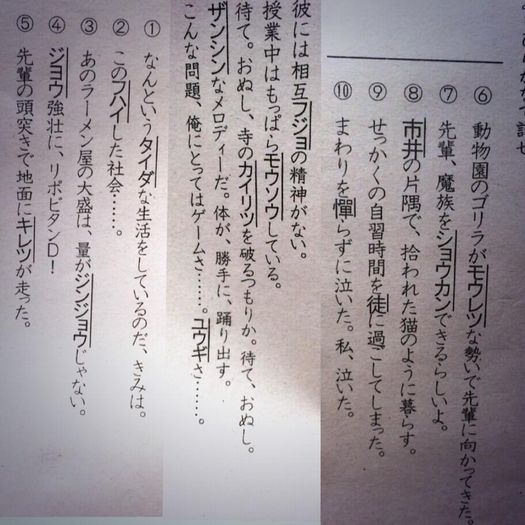 彼には相互フジョの精神がない。
授業中はもっぱらモウソウしている。
待て。おぬし、寺のカイリツを破るつもりか。待て、おぬし。
ザンシンなメロディーだ。体が、勝手に、踊り出す。
こんな問題、俺にとってはゲームさ……。ユウギさ……。
① なんというタイダな生活をしているのだ、きみは。
② このフハイした社会……。
③ あのラーメン屋の大盛は、量がジンジョウじゃない。
④ ジョウ強壮に、リポビタンD！
⑤ 先輩の頭突きで地面にキレツが走った。
⑥ 動物園のゴリラがモウレツな勢いで先輩に向かってきた。
⑦ 先輩、魔族をショウカンできるらしいよ。
⑧ 市井の片隅で、拾われた猫のように暮らす。
⑨ せっかくの自習時間を徒に過ごしてしまった。
⑩ まわりを憚らずに泣いた。私、泣いた。